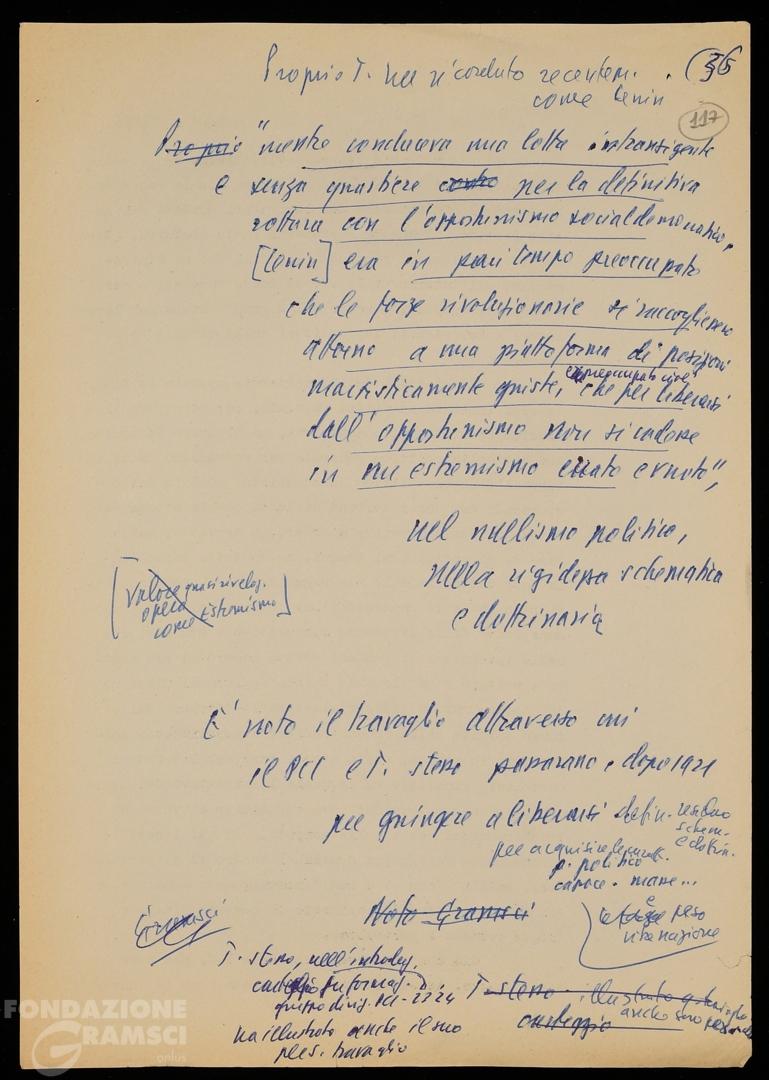 Proprio T. ha ricordato recentem. . (35
come Lenin
117
Proprio "mentre conduceva una lotta intransigente
e senza quartiere contro per la definitiva
rottura con l'opportunismo socialdemocratico,
[Lenin] era in pari tempo preoccupato
che le forze rivoluzionarie si raccogliessero
attorno a una piattaforma di posizioni
marxisticamente giuste, e preoccupato cioè
che per liberarsi
dall'opportunismo non si cadesse
in un estremismo vuoto",
nel nullismo politico,
nella rigidezza schematica
e dottrinaria
[Valore quasi rivelaz.
opera
come Estremismo]
E' noto il travaglio attraverso cui
il PCI e T. stesso passarono dopo 1921
per giungere a liberarsi defin. residuo
schem.
e dottrin.
per acquisire
p. politico
capace. masse...
e
peso
vita nazione
Gramsci
Noto Gramsci
T. stesso, nell'introduz.
carteggio formaz.
gruppo dirig. PCI - 23 24
T. stesso illustrato
carteggio anche suo pers.
ha illustrato anche il suo
pers. travaglio
FONDAZIONE
GRAMSCI
onlus